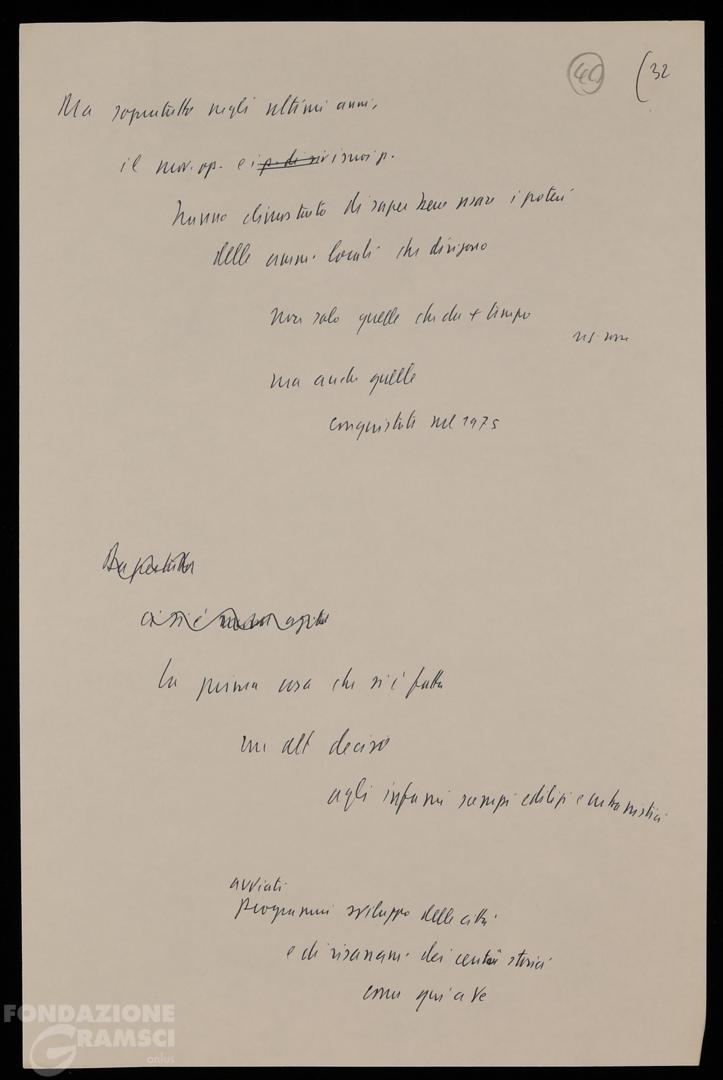 40 (32
Ma soprattutto negli ultimi anni,
il mov. op. e i p. di si i suoi p.
hanno dimostrato di saper bene usare i poteri
delle amm. locali che dirigono
non solo quelle che da + tempo
ma anche quelle
conquistate nel 1975
ci si è
la prima cosa che si è fatta
un alt deciso
agli infami scempi edilizi e urbanistici
avviati
programmi sviluppo delle città
e di risanam. dei centri storici
come qui a Ve
FONDAZIONE
GRAMSCI
onlus